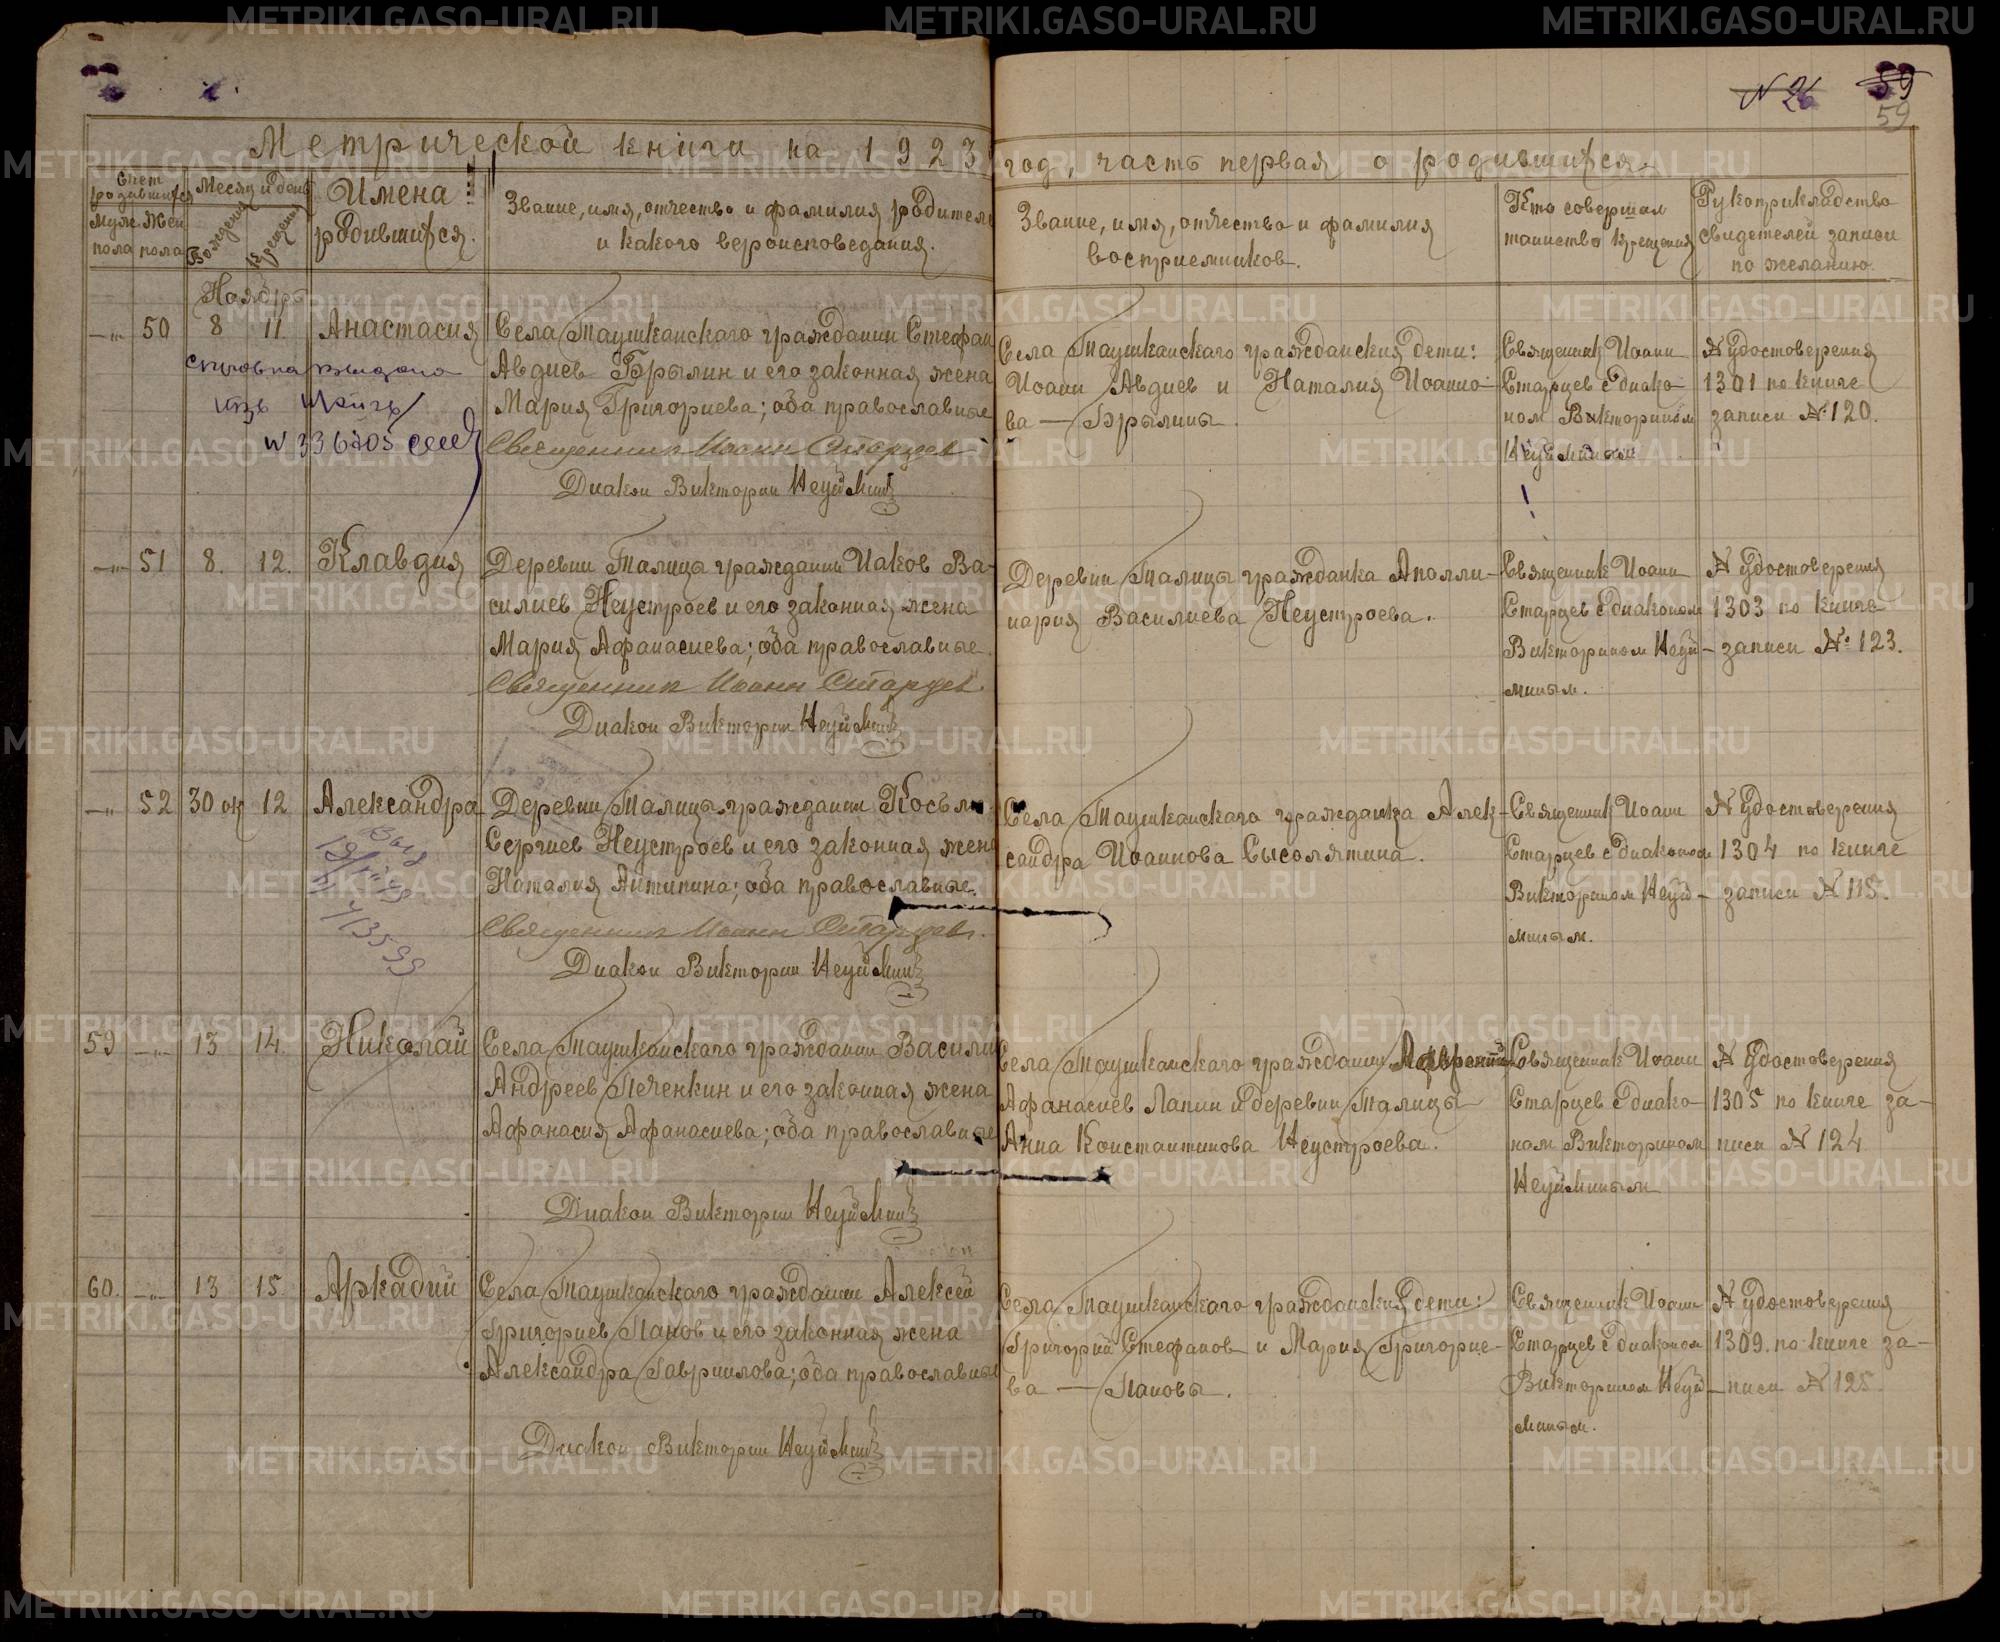 N 26 59
59
Метрической книги на 1923 год, часть первая о родившихся.
Счет родившихся
Месяц и день
Имена родившихся.
Звание, имя, отчество и фамилия родителей
и какого вероисповедания.
Звание, имя, отчество и фамилия
восприемников.
Кто совершал
таинство крещения
Рукоприкладство
свидетелей записи
по желанию.
Муж. пола
Жен. пола
Рождения
Крещения
Ноябрь
50 8 11 Анастасия
Села Таушканского гражданин Стефан
Авдиев Брылин и его законная жена
Мария Григориева; оба православные
Священник Иоанн Старцев
Диакон Викторин Неуймин
Села Таушканского гражданския дети:
Иоанн Авдиев и Наталия Иоанно-
ва — Брылины.
Священник Иоанн
Старцев с диако-
ном Викторином
Неуйминым
N удостоверения
1301 по книге
записи N 120.
51 8. 12. Клавдия
Деревни Талицы гражданин Иаков Ва-
силиев Неустроев и его законная жена
Мария Афанасиева; оба православные.
Священник Иоанн Старцев.
Диакон Викторин Неуймин
Деревни Талицы гражданка Аполли-
нария Василиева Неустроева.
Священник Иоанн
Старцев с диаконом
Викторином Неуй-
миным.
N удостоверения
1303 по книге
записи №123.
52 30 ок 12 Александра
Деревни Талицы гражданин Косьма
Сергиев Неустроев и его законная жена
Наталия Антипина; оба православные.
Священник Иоанн Старцев.
Диакон Викторин Неуймин
Села Таушканского гражданка Алек-
сандра Иоаннова Сысолятина.
Священник Иоанн
Старцев с диаконом
Викторином Неуй-
миным.
N удостоверения
1304 по книге
записи N 115.
59 13 14 Николай
Села Таушканского гражданин Василий
Андреев Печенкин и его законная жена
Афанасия Афанасиева; оба православные
Диакон Викторин Неуймин
Села Таушканского гражданин Лаврентий
Афанасиев Лапин и деревни Талицы
Анна Константинова Неустроева.
Священник Иоанн
Старцев с диако-
ном Викторином
Неуйминым
N удостоверения
1305 по книге за-
писи N 124
60. 13 15 Аркадий
Села Таушканского гражданин Алексей
Григориев Панов и его законная жена
Александра Гавриилова; оба православные
Диакон Викторин Неуймин
Села Таушканского гражданския дети:
Григорий Стефанов и Мария Григорие-
ва — Пановы.
Священник Иоанн
Старцев с диаконом
Викторином Неуй-
миным.
N удостоверения
1309. по книге за-
писи N 125.
METRIKI.GASO-URAL.RU